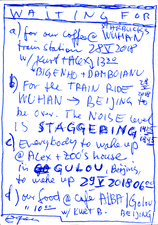 WAITING FOR
STARBUCKS
a) for our coffee @ WUHAN
train station 28 V 2018
w/ Kurt + Alex) 1320
+ BIGENHO + DAMBOIANU
b) For the TRAIN RIDE
WUHAN → BEIJING to
be over. The NOISE level
IS STAGGERING
c) Everybody to wake up
@ Alex + Zoo's house
in GULOU, Beijing,
to wake up 29 V 2018 0600
d) our food @ Cafe ALBA | Gulou
w/ KURT B. BEIJING